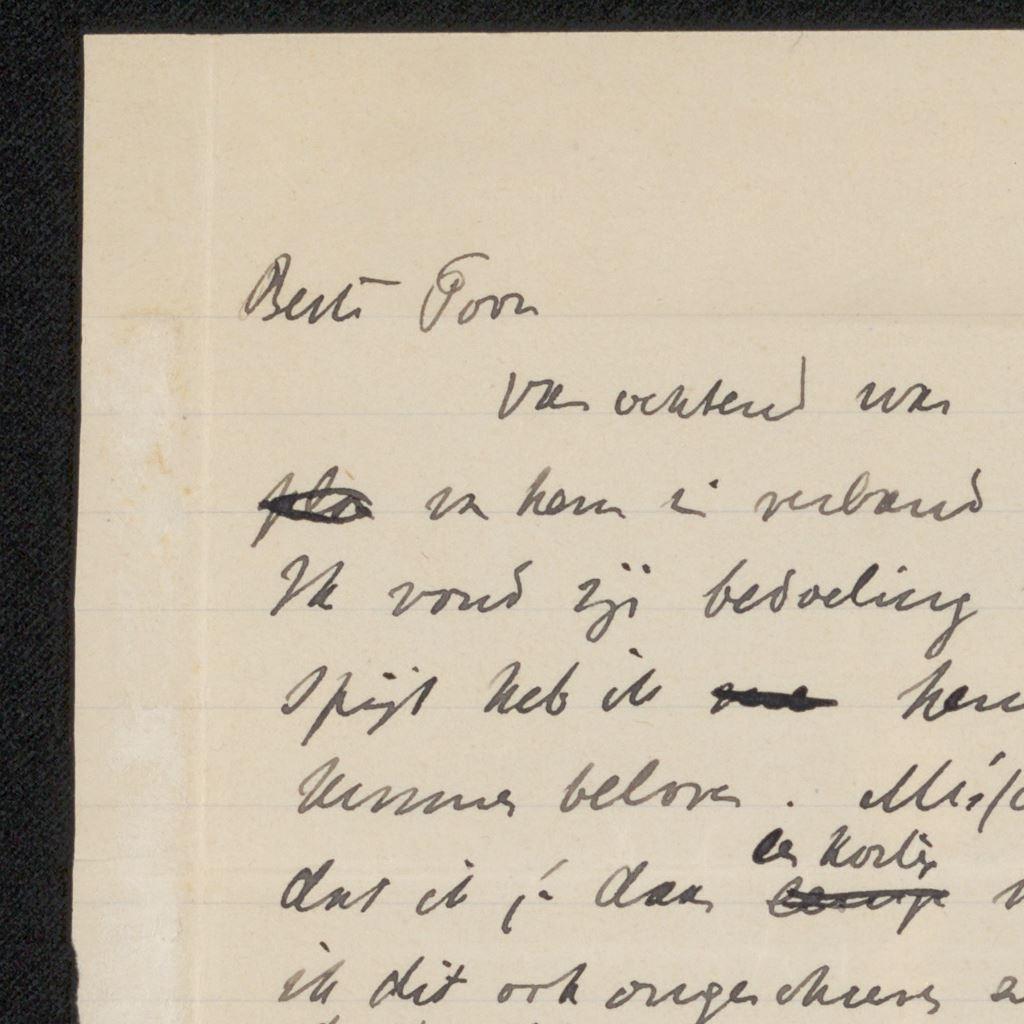 Beste Toon
van ochtend was
van hem in verband
Ik vond zijn bedoeling
spijt heb ik hem
kunnen beloven. Misc
en kortij
dat ik je dan
ik dit ook ongeschreven